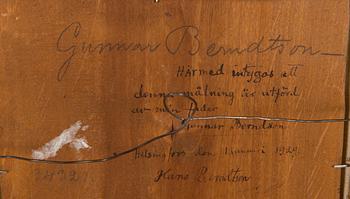 Gunnar Berndtson
Härmed intygas att
denna målning är utförd
av min fader
Gunnar Berndtson
Helsingfors den 1 1929.
Hans Berndtson